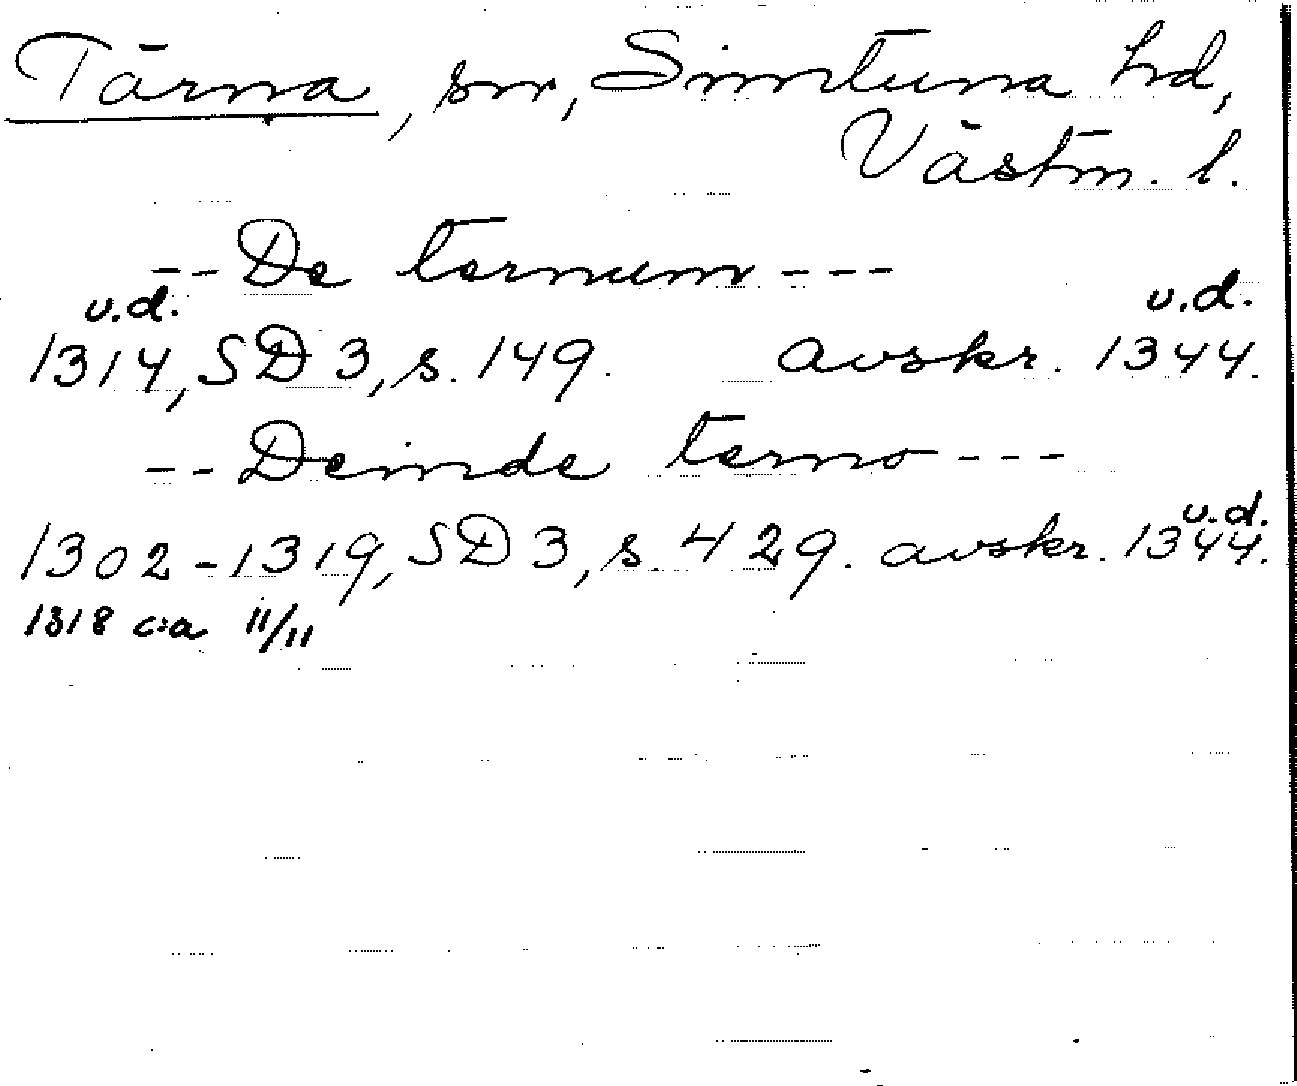 Tärna, sn, Simtuna hd,
Västm. l.
-- De ternum ---
u.d. u.d.
1314, SD 3, s. 149. avskr. 1344.
-- Deinde terno ---
u.d.
1302-1319, SD 3, s. 429. avskr. 1344.
1318 c:a 11/11